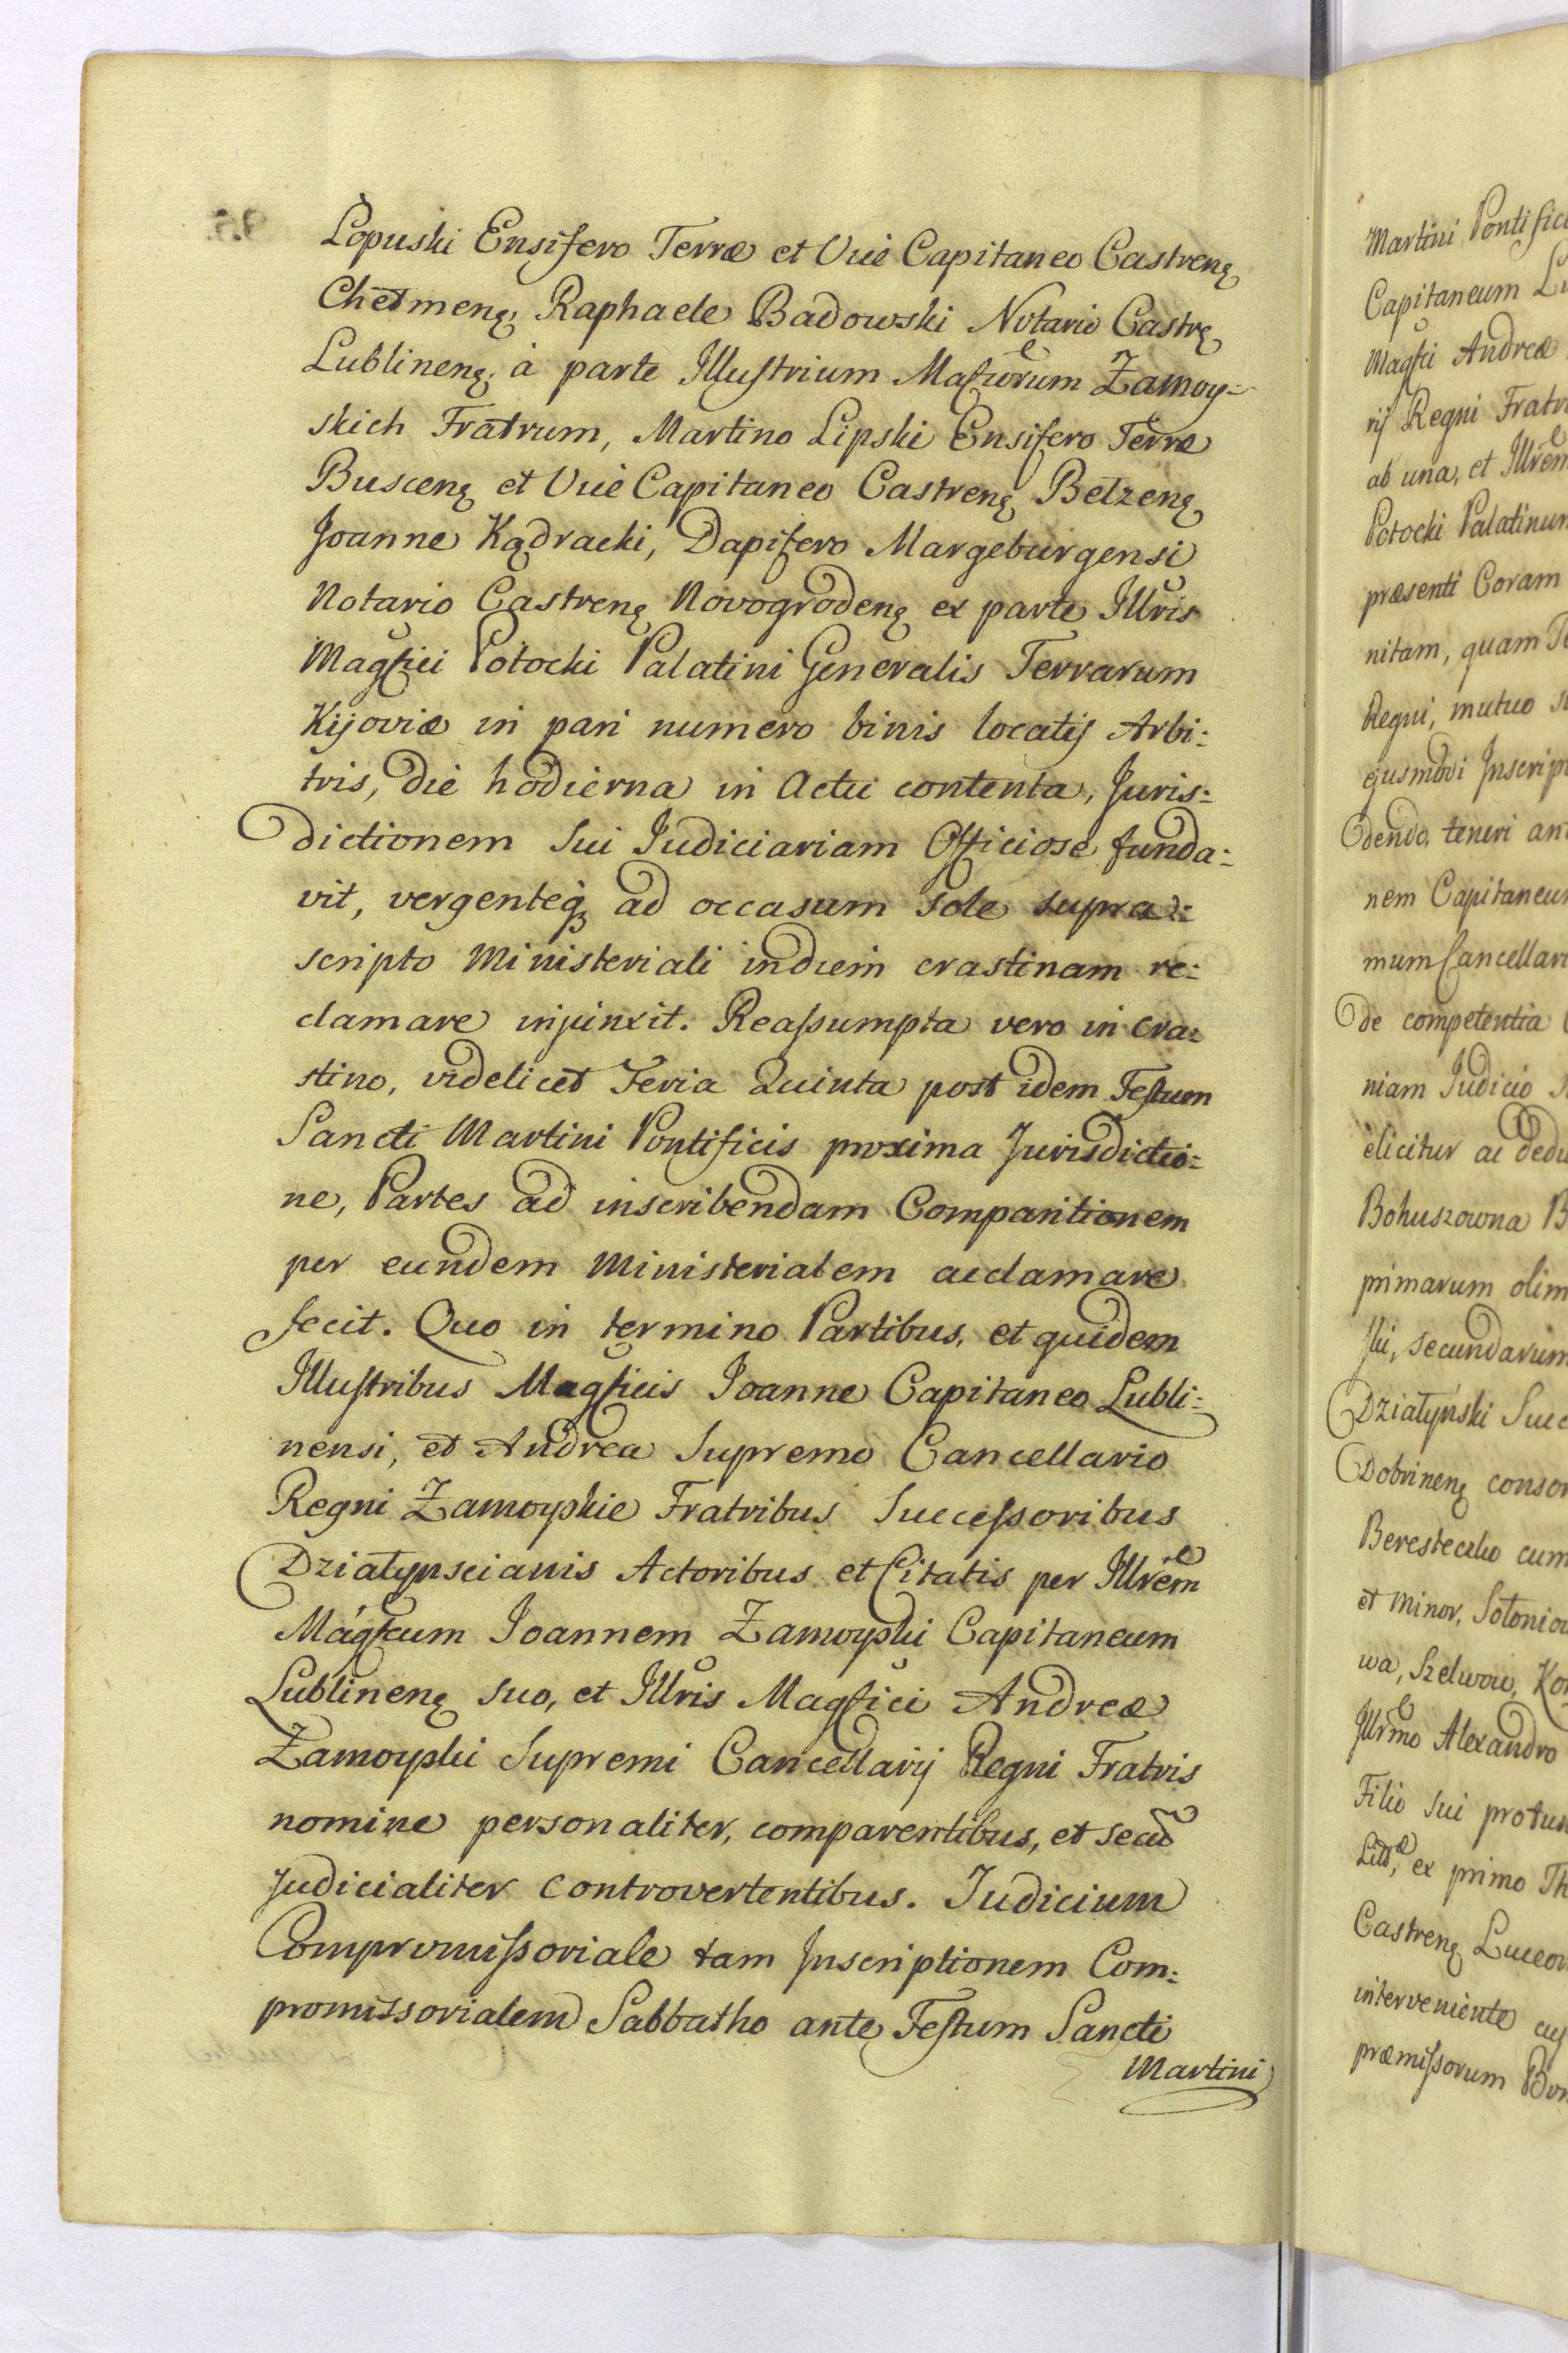 Łopuski Ensifero Terræ et Vice Capitaneo Castreng
Chełmeng, Raphaele Badowski Notario Castrg
Lublineng, à parte Illustrium Magficorum Zamoy-
skich Fratrum, Martino Lipski Ensifero Terræ
Busceng et Vice Capitaneo Castreng Bełzeng,
Joanne Kądracki, Dapifero Margeburgensi
Notario Castreng Novogrodeng ex parte Illris
Magfici Potocki Palatini Generalis Terrarum
Kijoviæ in pari numero binis locatis Arbi:
tris, die hodierna in Actu contenta, Juris:
dictionem Sui Judiciariam Officiose funda:
vit, vergenteq ad occasum Sole supra:
scripto Ministeriali in diem crastinam re:
clamare injunxit. Reassumpta vero in cra:
stino, videlicet Feria Quinta post idem Festum
Sancti Martini Pontificis proxima Jurisdictio:
ne, Partes ad inscribendam Comparitionem
per eundem Ministerialem acclamare
fecit. Quo in termino Partibus, et quidem
Illustribus Magficis Joanne Capitaneo Lubli:
nensi, et Andrea Supremo Cancellario
Regni Zamoyskie Fratribus Successoribus
Działynscianis Actoribus et Citatis per Illrem
Magfcum Joannem Zamoyski Capitaneum
Lublineng suo, et Illris Magfici Andreæ
Zamoyski Supremi Cancellarij Regni Fratris
nomine personaliter, comparentibus, et secū
Judicialiter controvertentibus. Judicium
Compromissoriale tam Inscriptionem Com:
promissorialem Sabbatho ante Festum Sancti
Martini
Martini
Capitaneum
Magfci Andreæ
rij Regni
ab una, et Illrem
Potocki
præsenti Coram
nitam, quam
Regni, mutuo
ejusmodi
dendo, teneri
nem
mum
de competentia
niam Judicio
elicitur ac
Bohuszowna
primarum olim
ski,
Działyński
Dobrineng
Beresteczko cum
et Minor,
wa, Szelwow,
Illrmo Alexandro
Filio Sui
ex primo
Castreng
interveniente
præmissorum